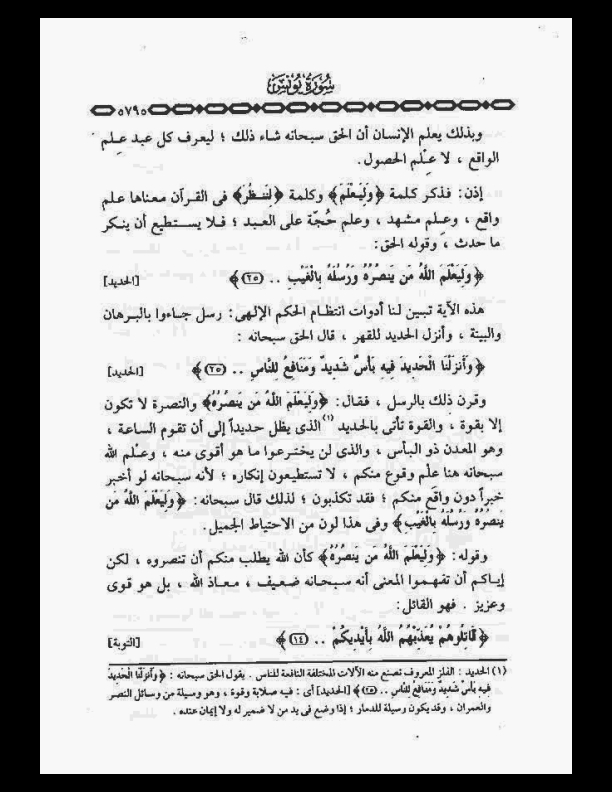 سُورَةُ يُونُسَ
٥٧٩٥
وبذلك يعلم الإنسان أن الحق سبحانه شاء ذلك ؛ ليعرف كل عبد عِلم
الواقع ، لا عِلْم الحصول.
إذن: فذكر كلمة ﴿وَلِيَعْلَمَ﴾ وكلمة ﴿لِنَنظُرَ﴾ فى القرآن معناها علم
واقع ، وعِلم مشهد ، وعلم حُجّة على العبد ؛ فلا يستطيع أن ينكر
ما حدث ، وقوله الحق:
﴿وَلِيَعْلَمَ اللَّهُ مَن يَنصُرُهُ وَرُسُلَهُ بِالْغَيْبِ .. (٢٥)﴾ [الحديد]
هذه الآية تبين لنا أدوات انتظام الحكم الإلهى: رسل جاءوا بالبرهان
والبينة ، وأنزل الحديد للقهر ، قال الحق سبحانه :
﴿وَأَنزَلْنَا الْحَدِيدَ فِيهِ بَأْسٌ شَدِيدٌ وَمَنَافِعُ لِلنَّاسِ .. (٢٥)﴾ [الحديد]
وقرن ذلك بالرسل ، فقال: ﴿وَلِيَعْلَمَ اللَّهُ مَن يَنصُرُهُ﴾ والنصرة لا تكون
إلا بقوة ، والقوة تأتى بالحديد (١) الذى يظل حديداً إلى أن تقوم الساعة ،
وهو المعدن ذو البأس ، والذى لن يخترعوا ما هو أقوى منه ، وعِلْم الله
سبحانه هنا علْم وقوع منكم ، لا تستطيعون إنكاره ؛ لأنه سبحانه لو أخبر
خبراً دون واقع منكم ؛ فقد تكذبون ؛ لذلك قال سبحانه: ﴿وَلِيَعْلَمَ اللَّهُ مَن
يَنصُرُهُ وَرُسُلَهُ بِالْغَيْبِ﴾ وفى هذا لون من الاحتياط الجميل.
وقوله: ﴿وَلِيَعْلَمَ اللَّهُ مَن يَنصُرُهُ﴾ كأن الله يطلب منكم أن تنصروه ، لكن
إياكم أن تفهموا المعنى أنه سبحانه ضعيف ، معاذ الله ، بل هو قوى
وعزيز . فهو القائل:
﴿قَاتِلُوهُمْ يُعَذِّبْهُمُ اللَّهُ بِأَيْدِيكُمْ .. (١٤)﴾ [التوبة]
(١) الحديد : الفلز المعروف تصنع منه الآلات المختلفة النافعة للناس . يقول الحق سبحانه : ﴿وَأَنزَلْنَا الْحَدِيدَ
فِيهِ بَأْسٌ شَدِيدٌ وَمَنَافِعُ لِلنَّاسِ .. (٢٥)﴾ [الحديد] أى : فيه صلابة وقوة ، وهو وسيلة من وسائل النصر
والعمران ، وقد يكون وسيلة للدمار ؛ إذا وضع فى يد من لا ضمير له ولا إيمان عنده .